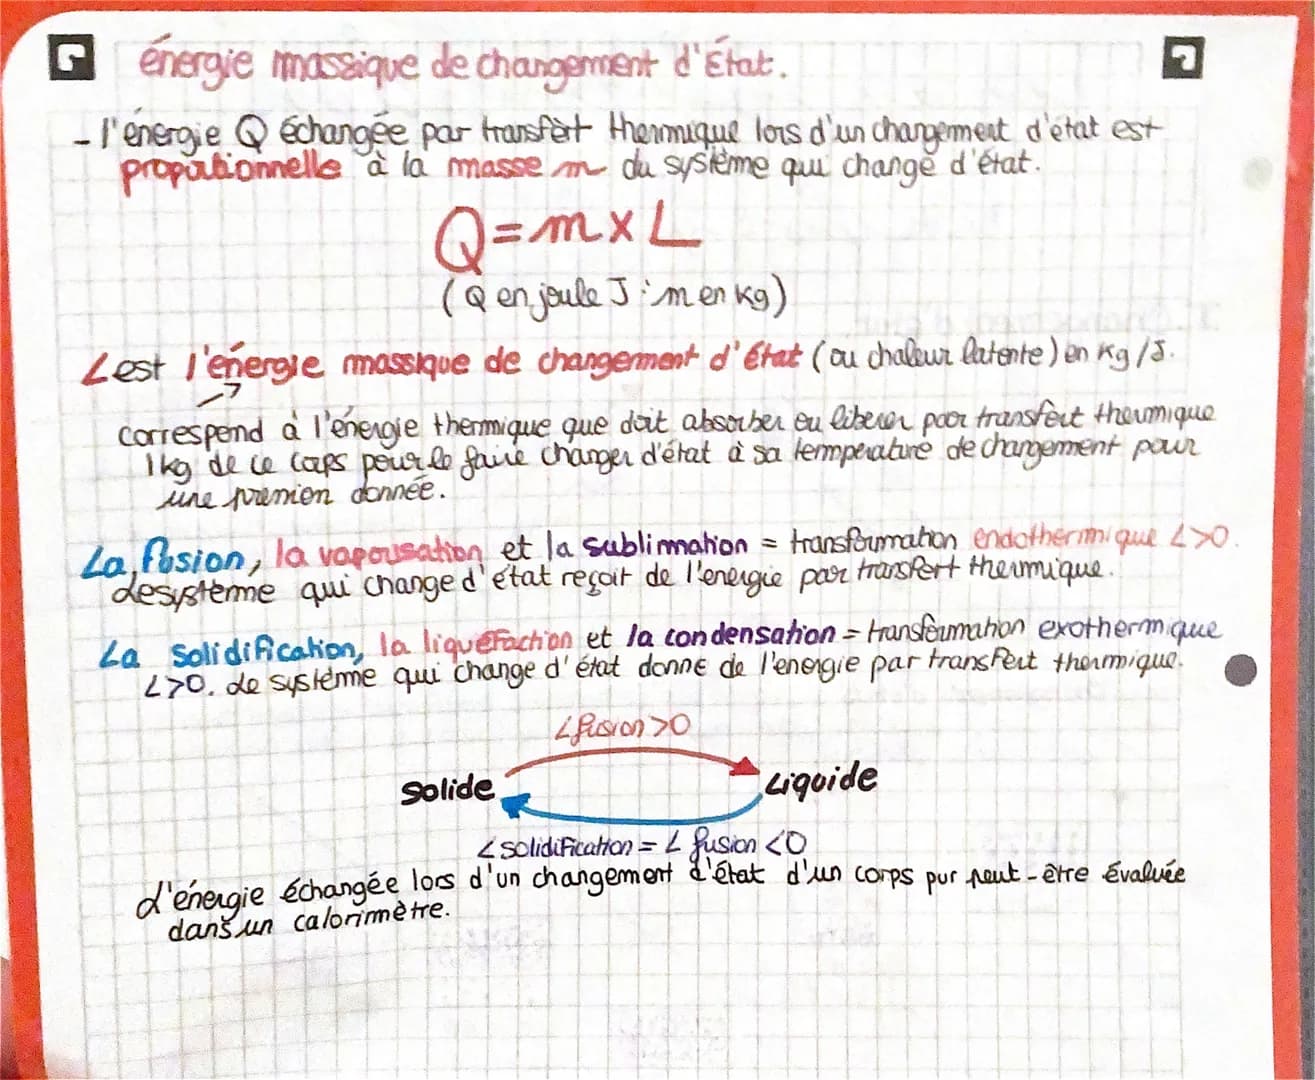 énergie massique de changement d'État.
- l'énergie Q échangée par transfèrt thermique lors d'un changement d'état est
proportionnelle à la masse m du système qui change d'état.
Q = m x L
(Q en joule J ; m en Kg)
L est l'énergie massique de changement d'État (ou chaleur latente) en Kg/J.
correspond à l'énergie thermique que doit absorber ou liberer pour transfert thermique
1kg de ce corps pour le faire changer d'état à sa température de changement pour
une pression donnée.
La fusion, la vaporisation et la sublimation = transformation endothermique L>0.
Le système qui change d'état reçoit de l'energie par transfert thermique.
La solidification, la liquéfaction et la condensation = transformation exothermique
L>0. Le système qui change d'état donne de l'energie par transfert thermique.
L fusion >0
Solide
Liquide
L solidification = L fusion <0
L'énergie échangée lors d'un changement d'état d'un corps pur peut-être évaluée
dans un calorimètre.